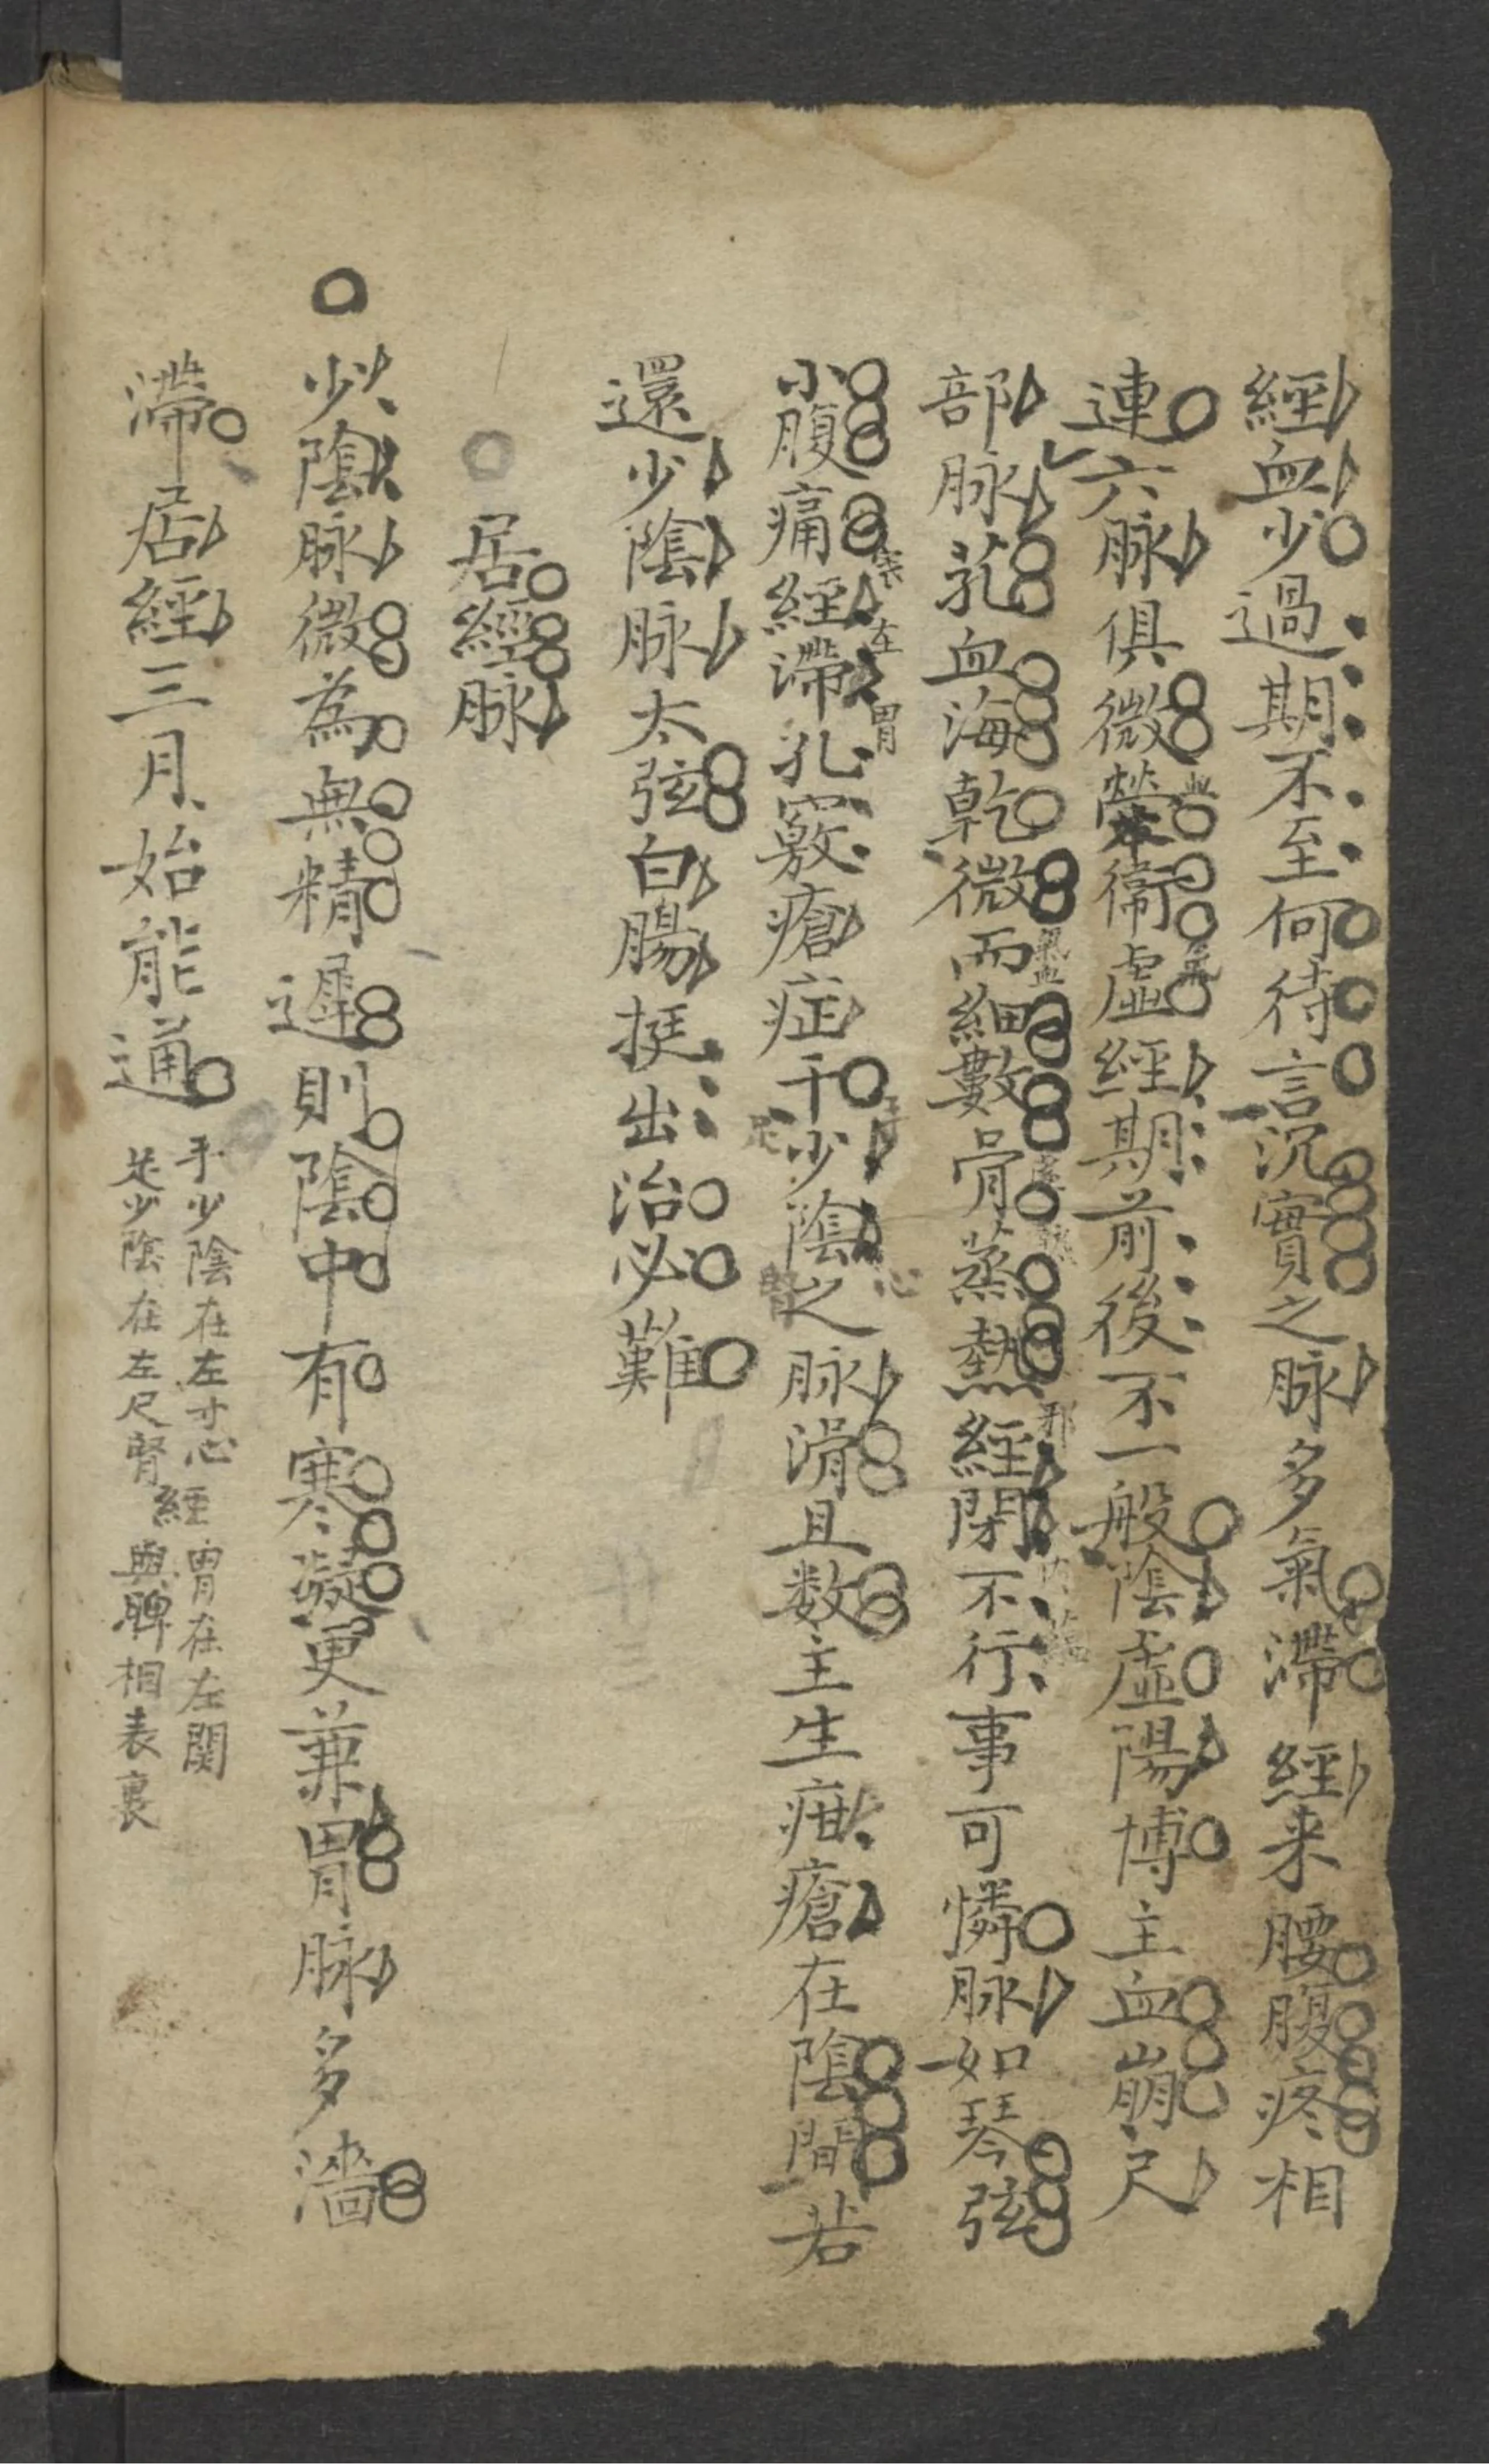 經血少過期不至何待言沉實之脉多氣滯經来腰腹疼相
連六脉俱微榮衛虛經期前後不一般陰虛陽博主血崩尺
部脉芤血海乾微而細數骨蒸熱經閉不行事可憐脉如琴弦
小腹痛經滯孔竅瘡症干少陰之脉滑且数主生疳瘡在陰間若
還少陰脉太弦白腸挺出治必難
居經脉
少陰脉微為無精遲則陰中有寒凝更兼胃脉多濇
滯居經三月始能通
手少陰在左寸心經胃在左関
足少陰在左尺腎經與脾相表裏